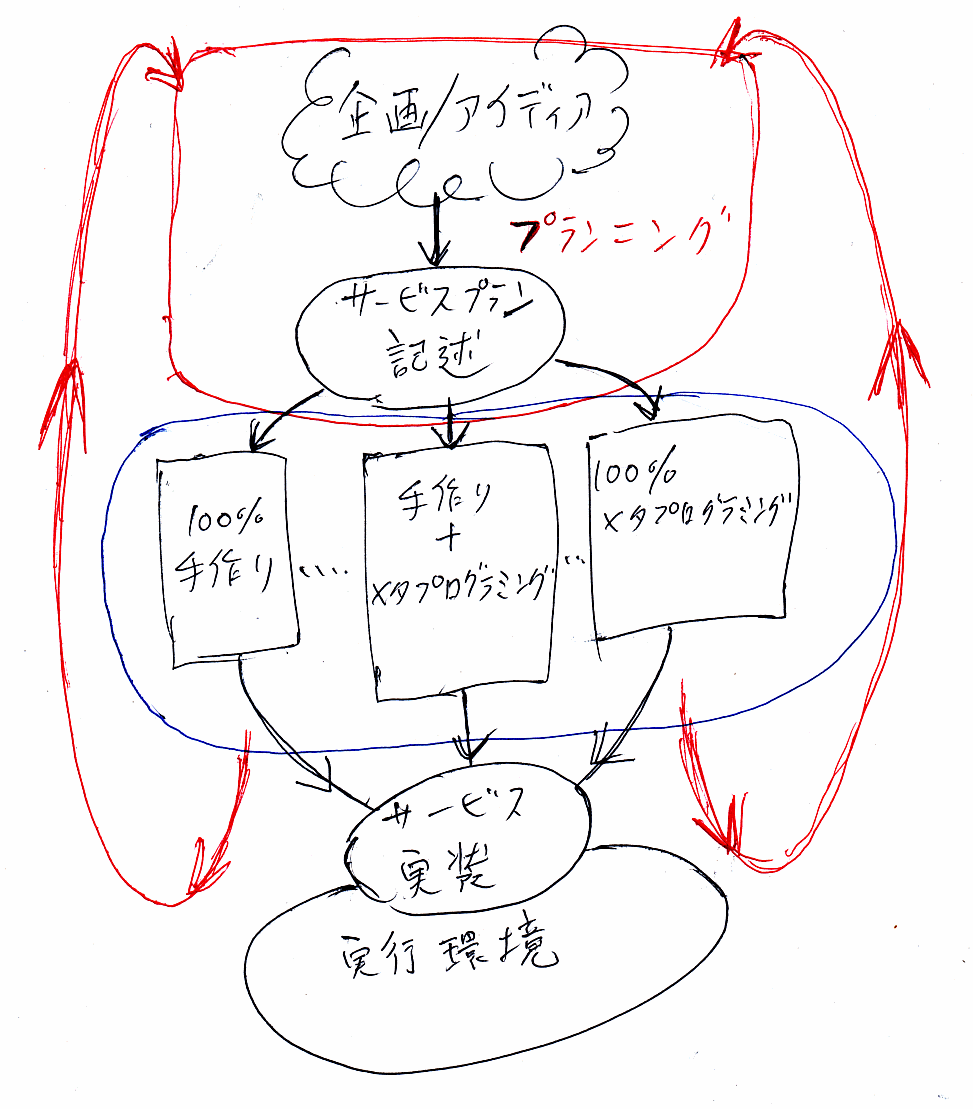 企画/アイディア
プランニング
サービスプラン
記述
100%
手作り
手作り
+
メタプログラミング
100%
メタプログラミング
サービス
実装
実行環境